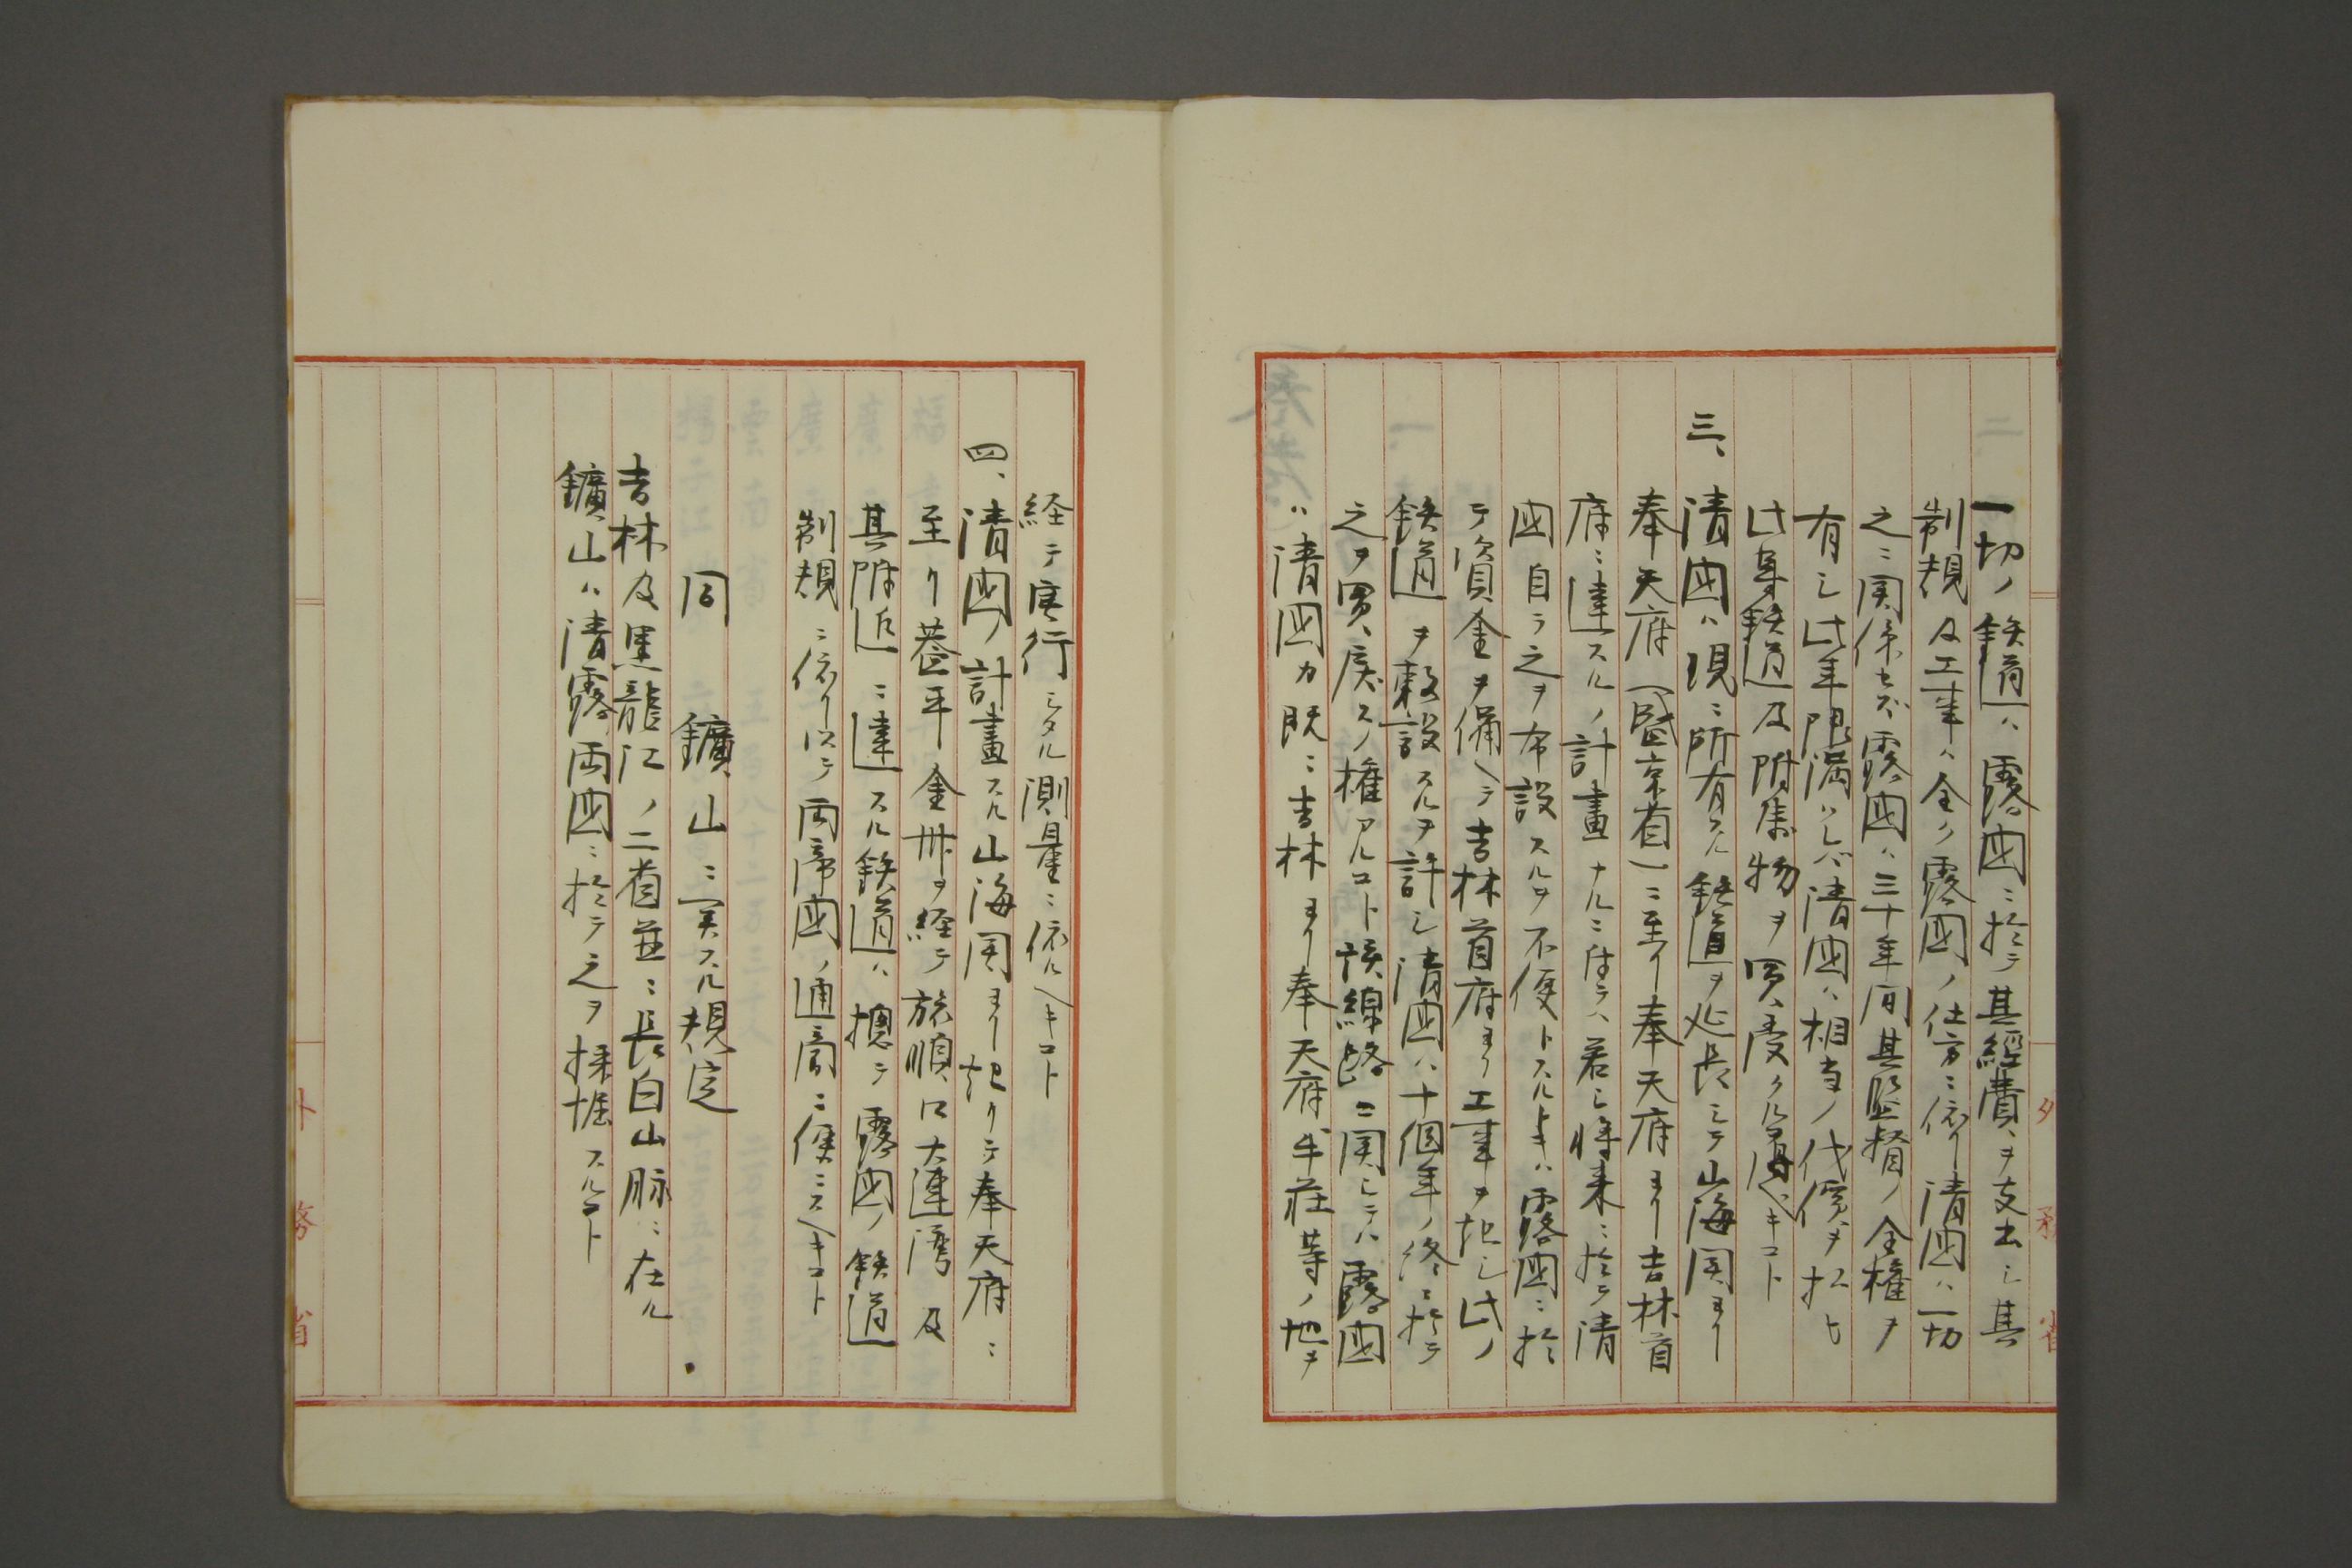 一切ノ鉄道ハ露國ニ於テ其經費ヲ支出シ其
制規及工事ハ全ク露國ノ仕方ニ依リ清國ハ一切
之ニ関係セズ露國ハ三十年間其監督ノ全権ヲ
有シ此年限満ツレバ清國ハ相当ノ代價ヲ払ヒ
此等鉄道及附属物ヲ買受クルヲ得ベキコト
三、清國ハ現ニ所有スル鉄道ヲ延長シテ山海関ヨリ
奉天府(盛京省)ニ至リ奉天府ヨリ吉林首
府ニ達スルノ計畫ナルニ付テハ若シ将来ニ於テ清
國自ラ之ヲ布設スルヲ不便トスルトキハ露國ニ於
テ資金ヲ備ヘテ吉林首府ヨリ工事ヲ起シ此ノ
鉄道ヲ敷設スルヲ許シ清國ハ十個年ノ終ニ於テ
之ヲ買戻スノ権アルコト該線路ニ関シテハ露國
ハ清國カ既ニ吉林ヨリ奉天府牛荘等ノ地ヲ
経テ実行シタル測量ニ依ルヘキコト
四、清國ノ計畫スル山海関ヨリ起リテ奉天府ニ
至リ蓋平金州ヲ経テ旅順口大連湾及
其附近ニ達スル鉄道ハ摠テ露國ノ鉄道
制規ニ依リ以テ両帝國ノ通商ニ便ニスヘキコト
同 鑛山ニ関スル規定
吉林及黒龍江ノ二省並ニ長白山脈ニ在ル
鑛山ハ清露両國ニ於テ之ヲ採掘スルコト
外務省
外務省